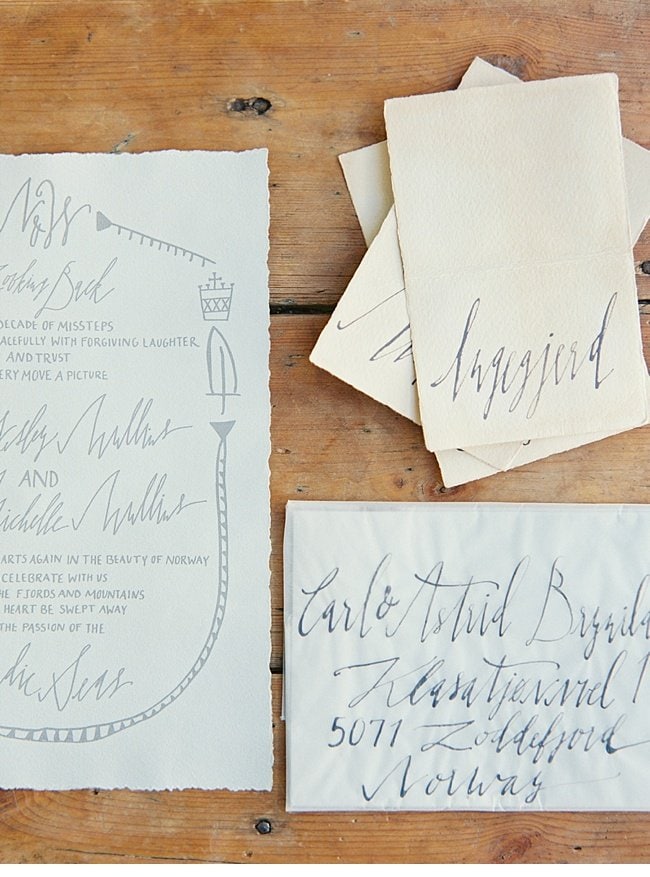 N&W
Looking Back
DECADE OF MISSTEPS
ACEFULLY WITH FORGIVING LAUGHTER
AND TRUST
ERY MOVE A PICTURE
Mullins
AND
Michelle Mullins
ARTS AGAIN IN THE BEAUTY OF NORWAY
CELEBRATE WITH US
HE FJORDS AND MOUNTAINS
HEART BE SWEPT AWAY
THE PASSION OF THE
dic Seas
Ingegjerd
Carl & Astrid
5071 Loddefjord
Norway